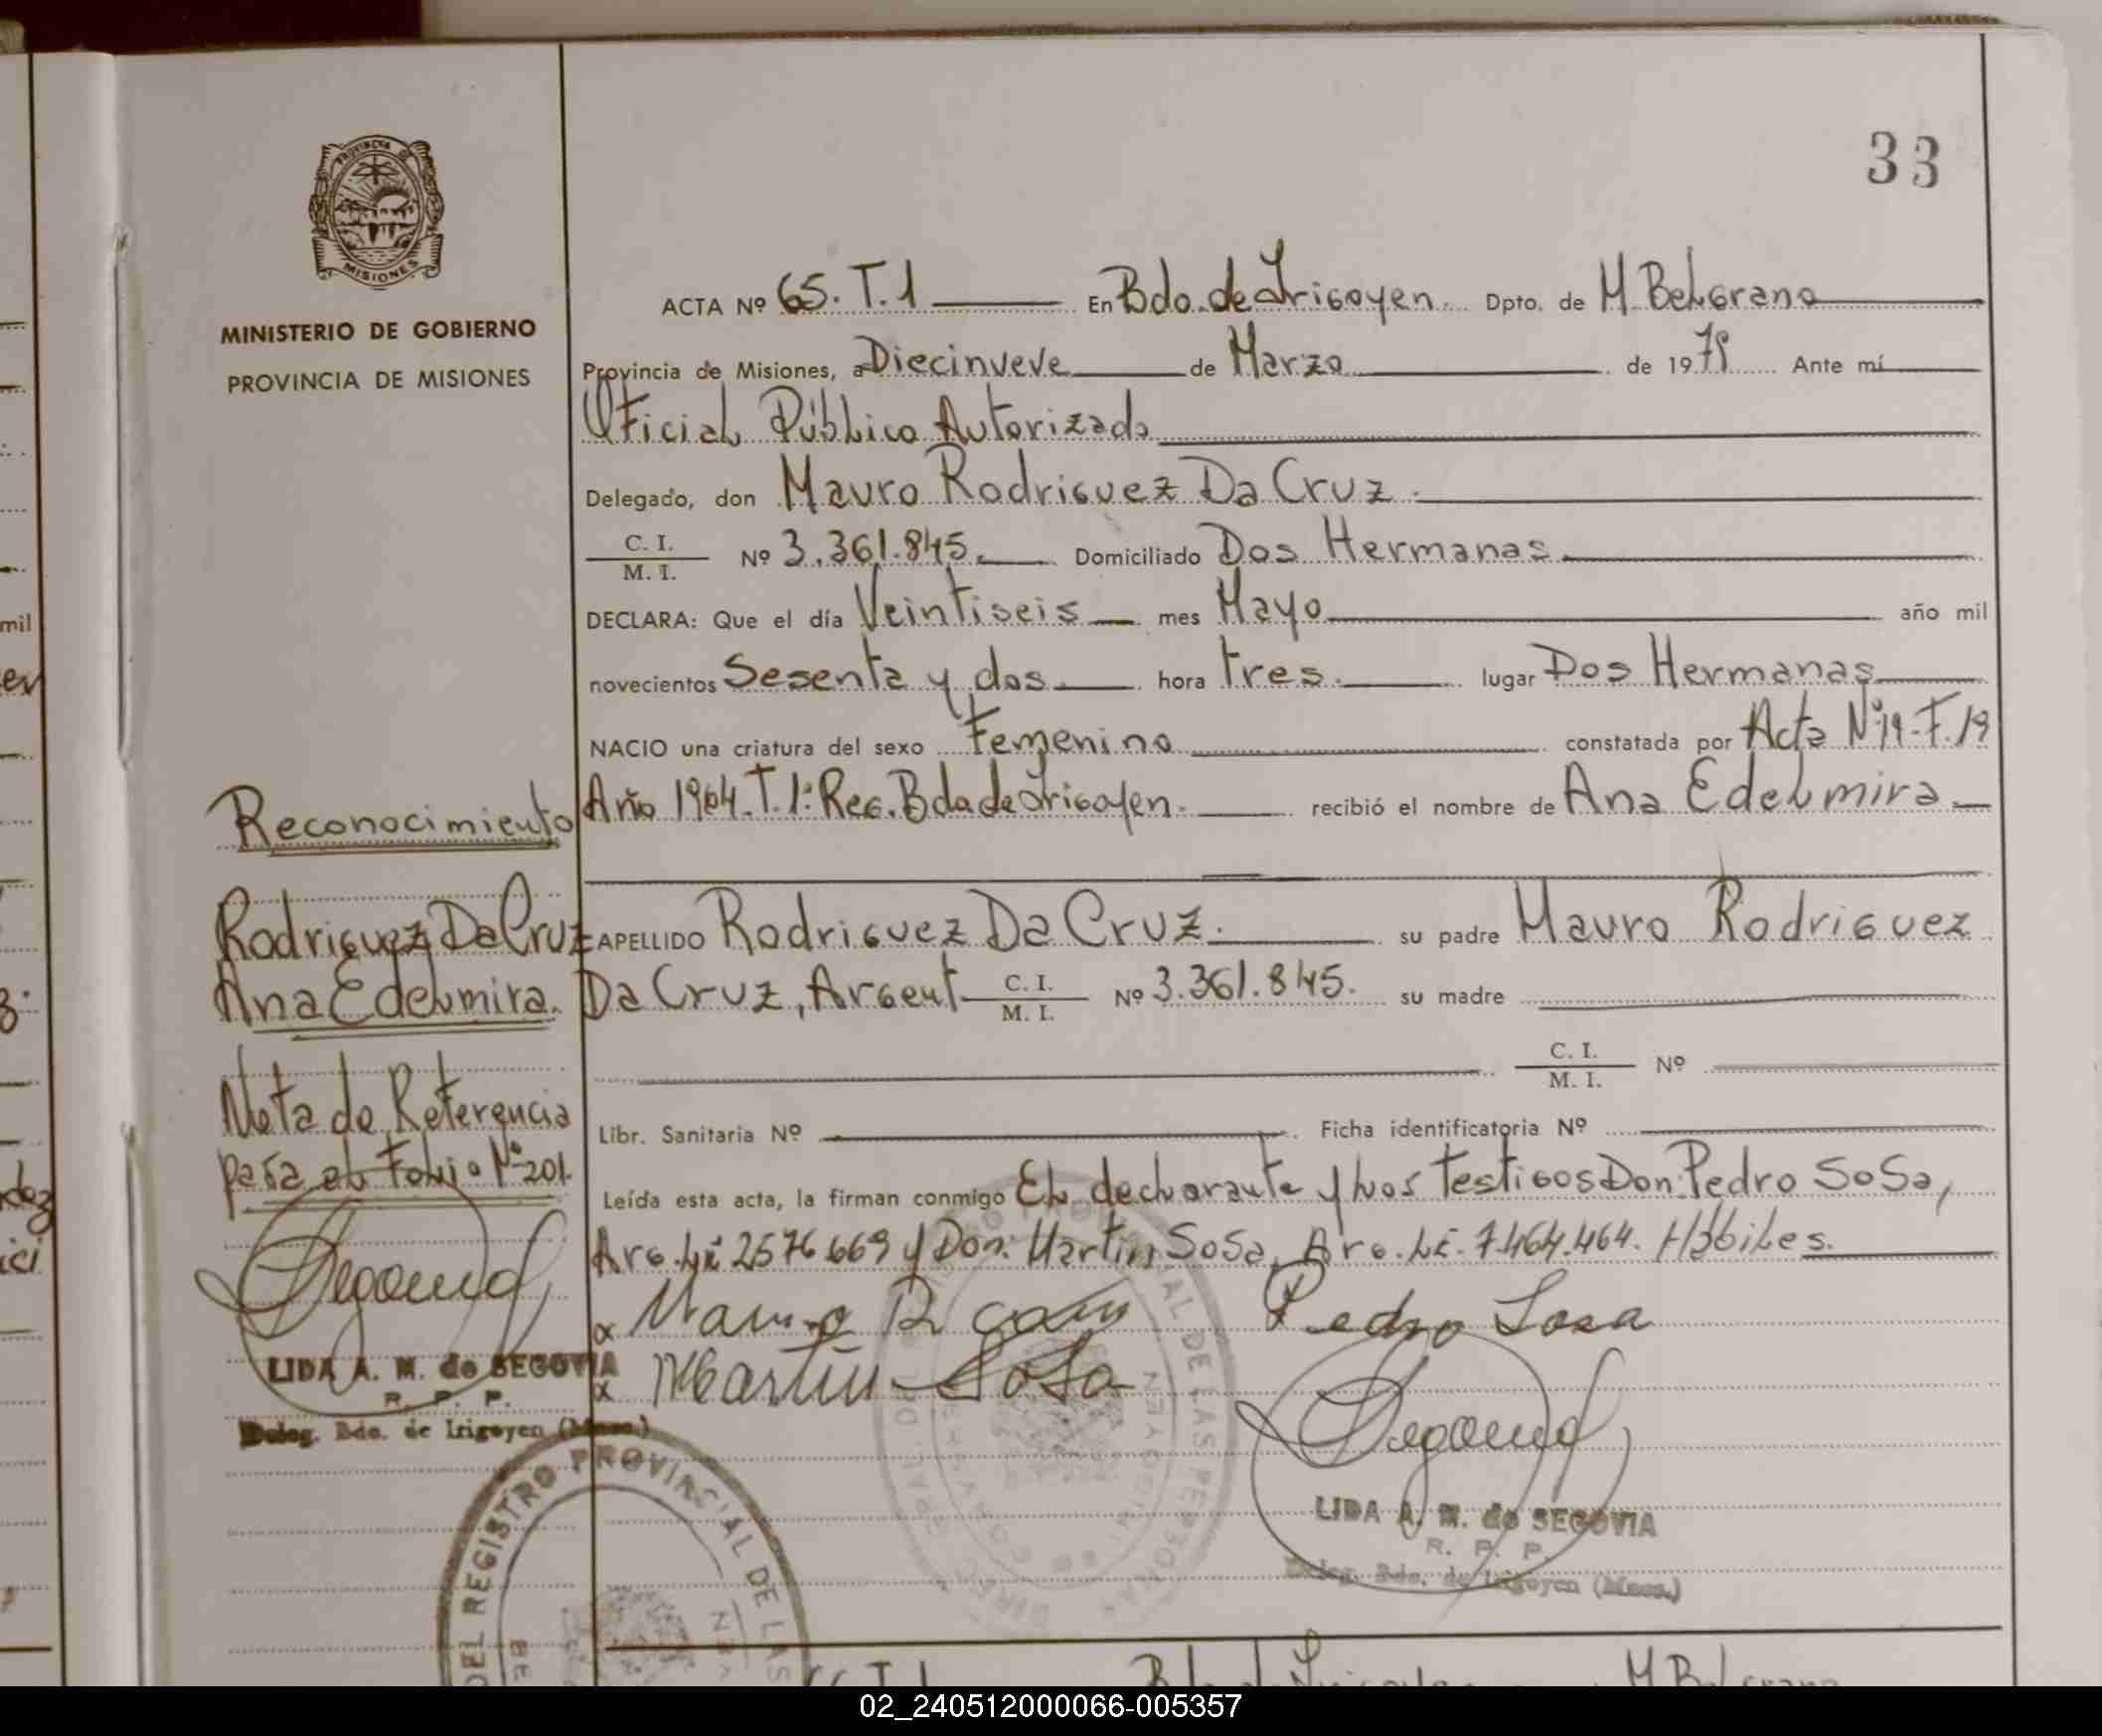 33
PROVINCIA DE
MISIONES
MINISTERIO DE GOBIERNO
PROVINCIA DE MISIONES
ACTA Nº 65. T. 1 En Bdo. de Irigoyen Dpto. de M. Belgrano
Provincia de Misiones, a Diecinueve de Marzo de 19 Ante mí
Oficial Público Autorizado
Delegado, don Mauro Rodriguez Da Cruz.
C. I.
M. I.
Nº 3.361.845. Domiciliado Dos Hermanas
DECLARA: Que el día Veintiseis mes Mayo año mil
novecientos Sesenta y dos hora tres. lugar Dos Hermanas
NACIO una criatura del sexo Femenino constatada por Acta Nº 19-F. 19
Año 1964. T. 1: Reg. Bdo de Irigoyen. recibió el nombre de Ana Edelmira
APELLIDO Rodriguez Da Cruz. su padre Mauro Rodriguez
Da Cruz, Argent C. I.
M. I.
Nº 3.361.845. su madre
C. I.
M. I.
Nº
Libr. Sanitaria Nº Ficha identificatoria Nº
Leída esta acta, la firman conmigo El declarante y los testigos Don. Pedro Sosa,
Arg. L.E. 2576669 y Don. Martin Sosa, Arg. L.E. 7.464.464. Hábiles.
Reconocimiento
Rodriguez Da Cruz
Ana Edelmira.
Nota de Referencia
pasa al Folio Nº 201.
LIDA A. M. de SEGOVIA
R. P. P.
Deleg. Bdo. de Irigoyen (Mnes.)
x Mauro R
Pedro Sosa
x Martin Sosa
LIDA A. M. de SEGOVIA
R. P. P.
Deleg. Bdo. de Irigoyen (Mnes.)
DEL REGISTRO PROVINCIAL DE LAS
02_240512000066-005357